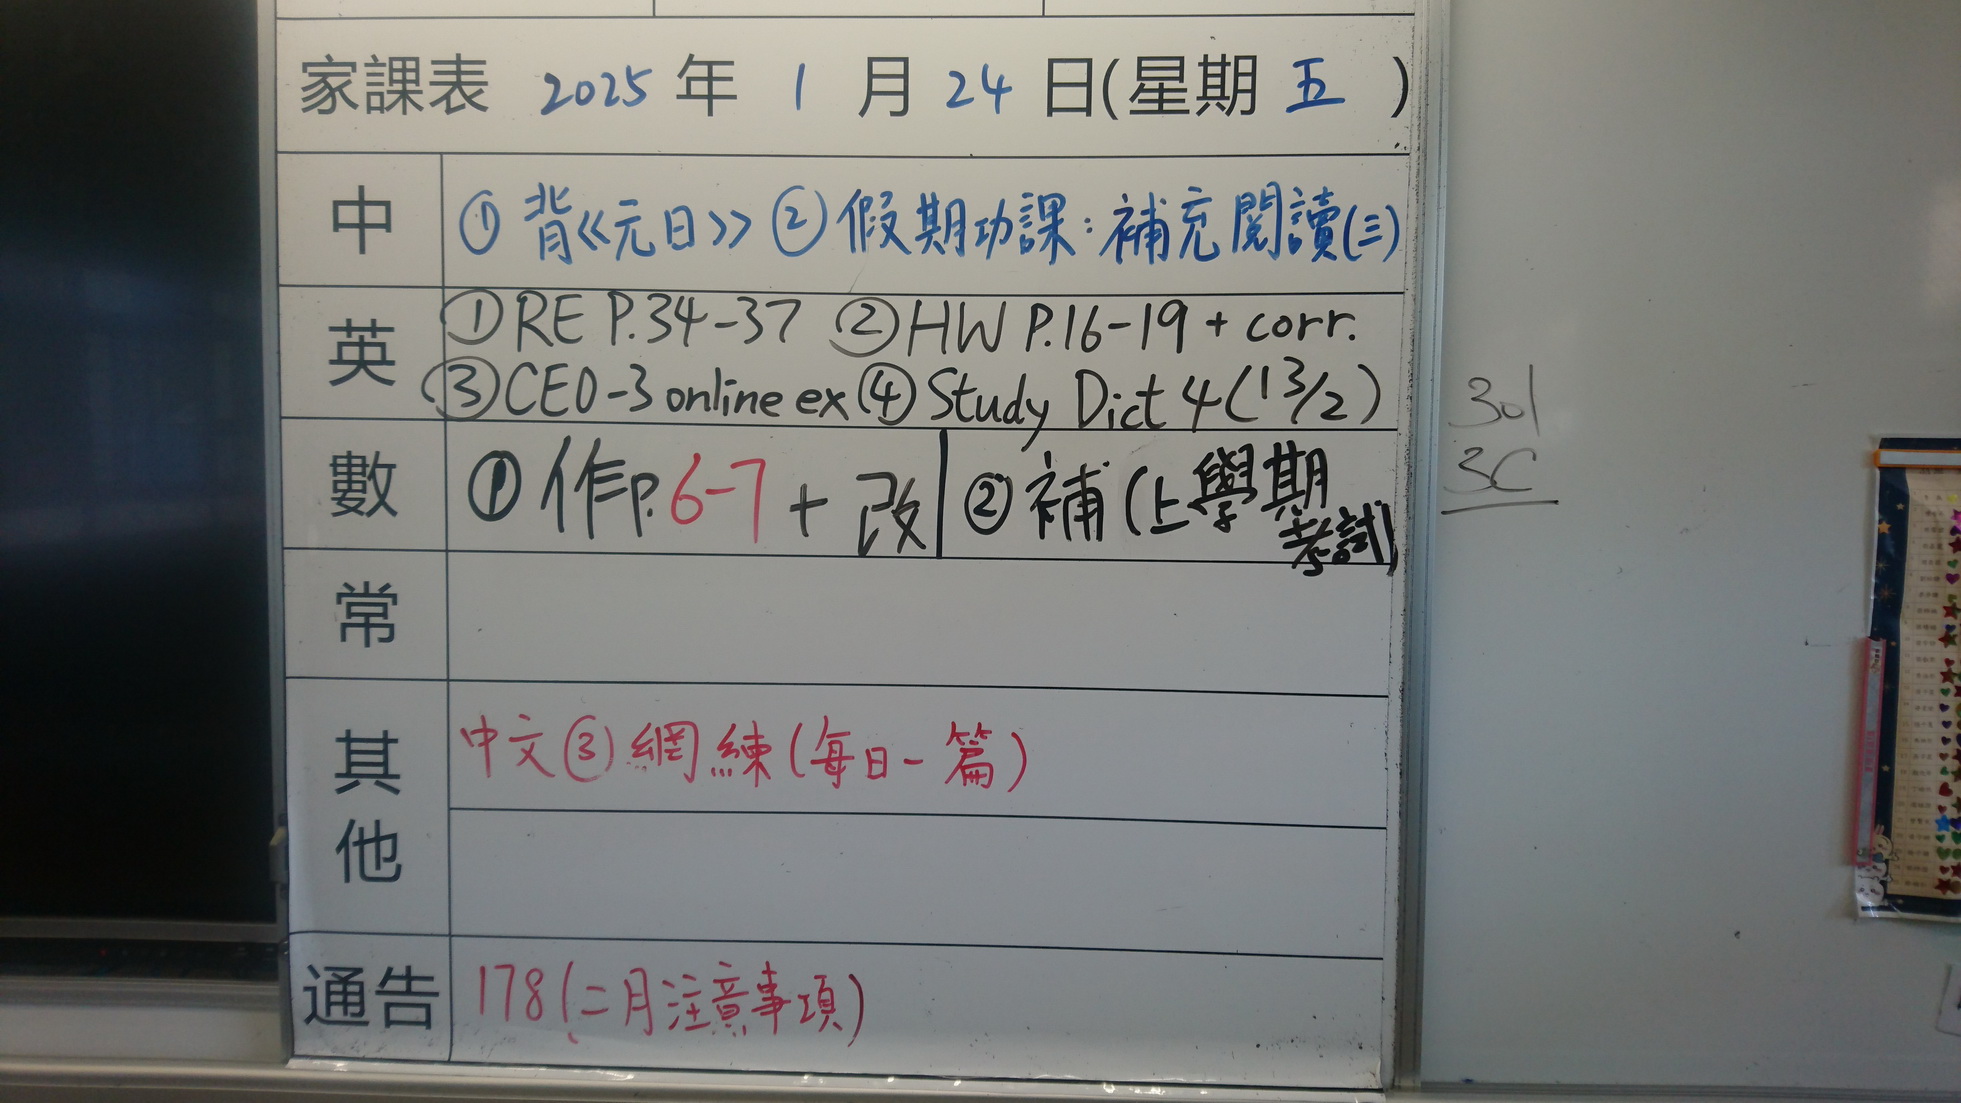 家課表 2025 年 1 月 24 日(星期 五 )
中 ① 背《元日》 ② 假期功課：補充閱讀(三)
英 ① RE P.34-37 ② HW P.16-19 + corr.
③ CEO-3 online ex ④ Study Dict 4 (13/2)
數 ① 作P. 6-7 + 改 ② 補 (上學期
考試)
常
其他 中文 ③ 網練 (每日一篇)
通告 178 (二月注意事項)
301
3C